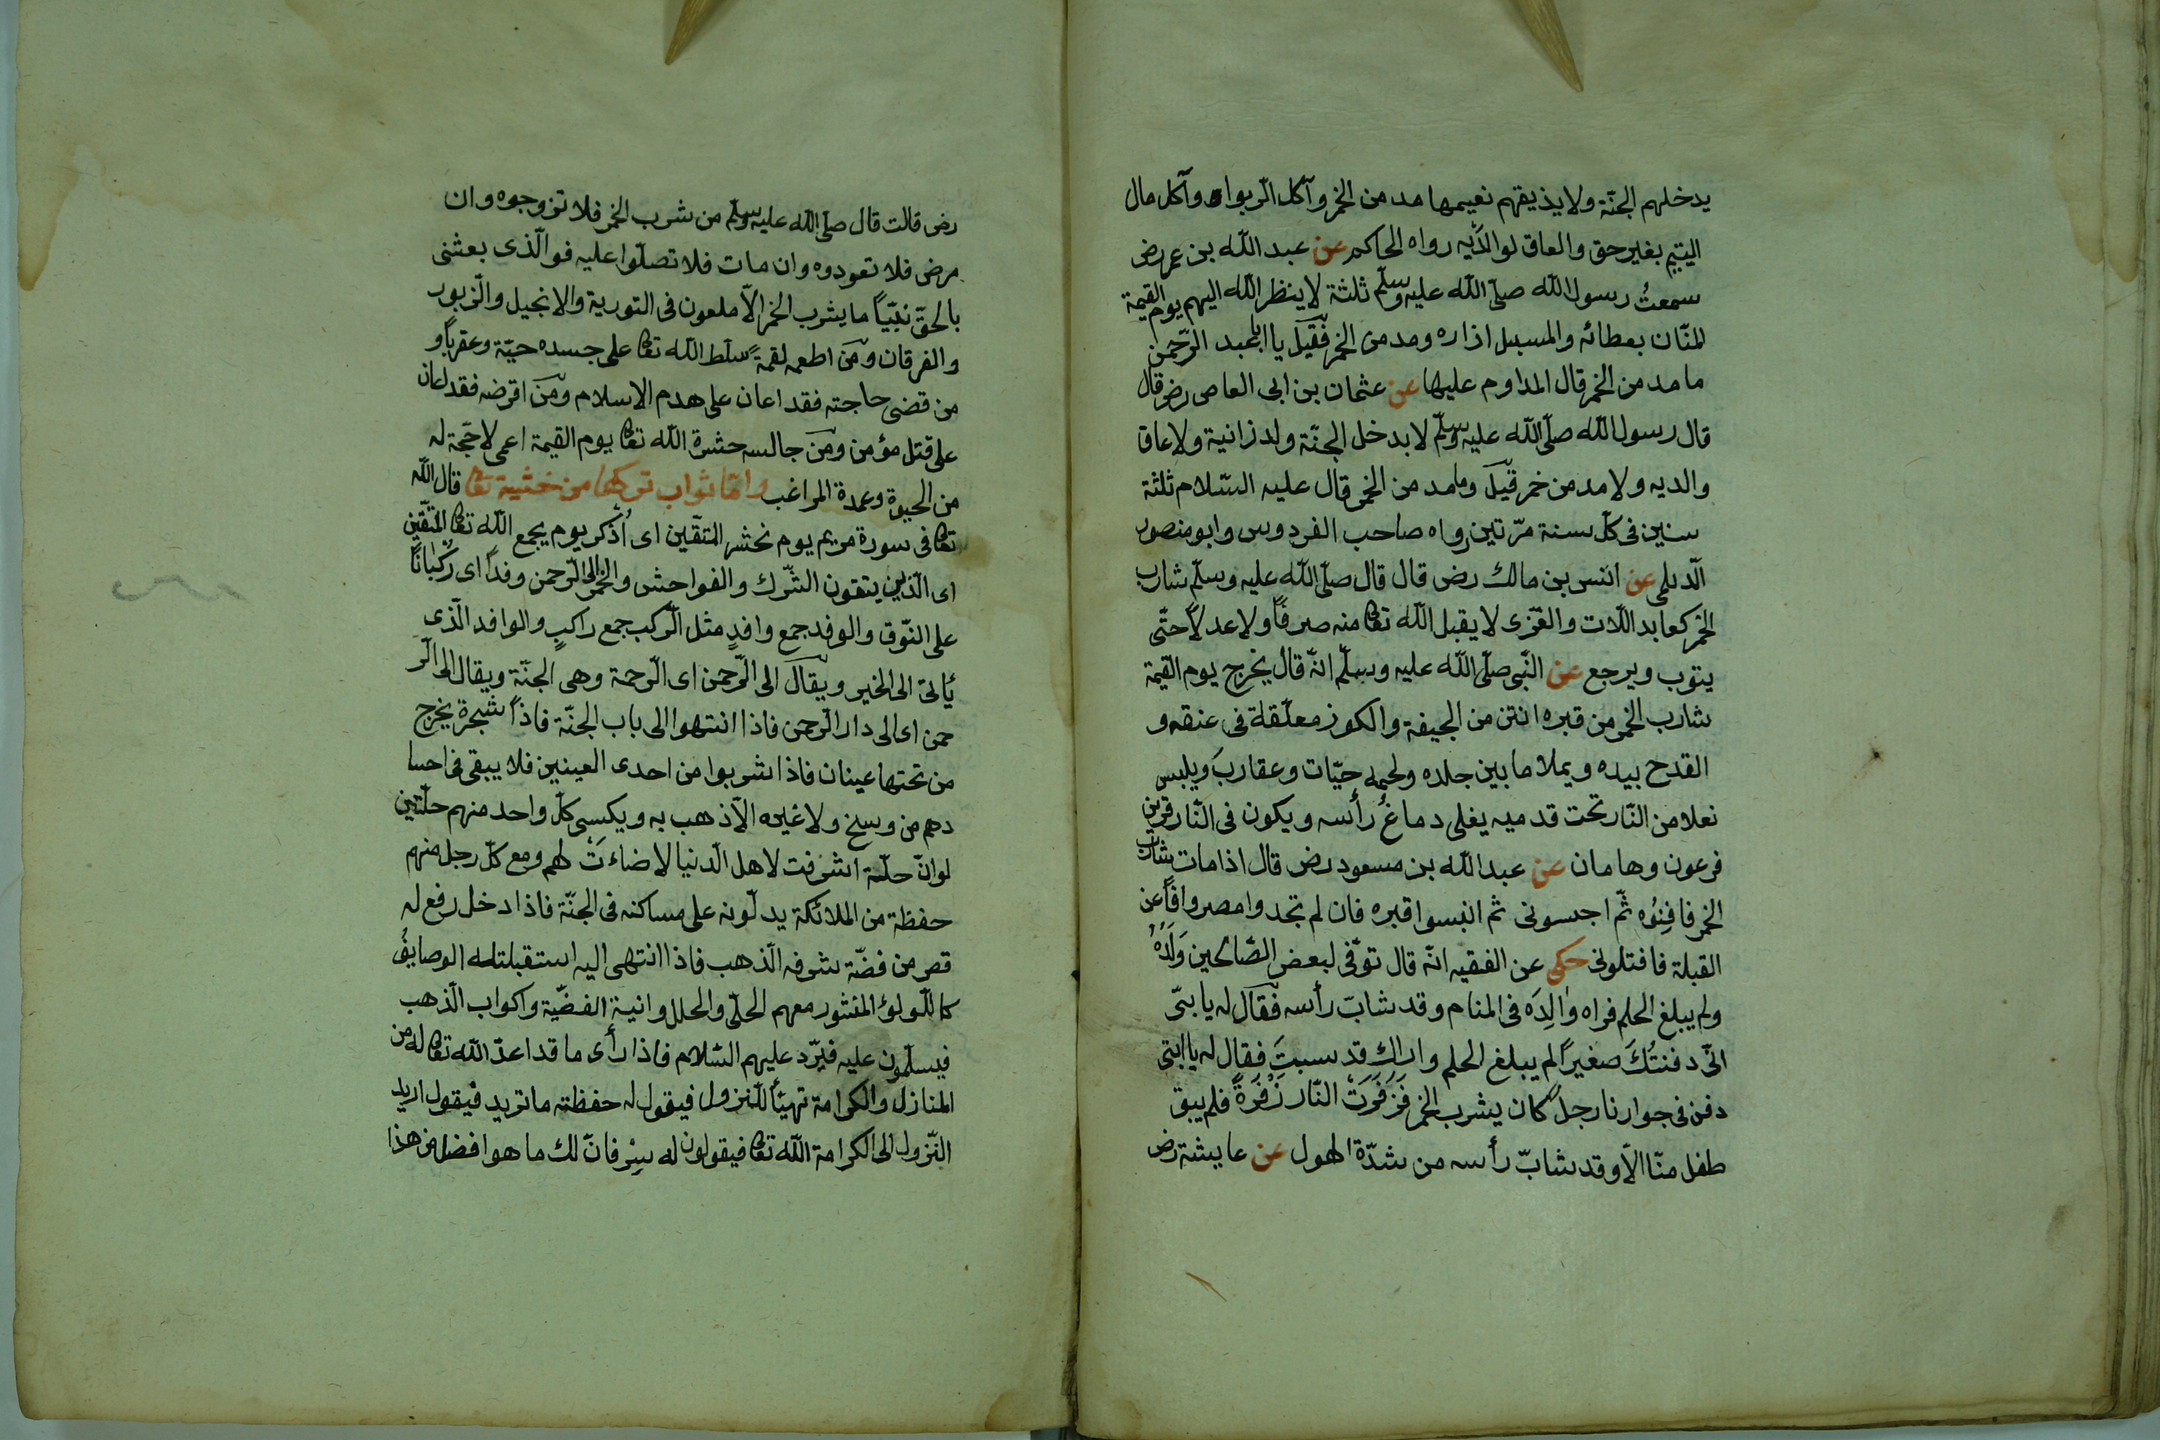 يدخلهم الجنّة ولا يذيقهم نعيمها مد من الخمر وآكل الرّبوا وآكل مال
اليتيم بغير حق والعاق لوالدَيه رواه الحاكم عن عبد الله بن عمر رض
سمعتُ رسول الله صلّى الله عليه وسلّم ثلثة لا ينظر الله اليهم يوم القيمة
المنّان بعطائه والمسبل ازاره ومد من الخمر فقيل يا ابا عبد الرّحمن
ما مد من الخمر قال المداوم عليها عن عثمان بن ابى العاصى رض قال
قال رسول الله صلّى الله عليه وسلّم لا يدخل الجنّة ولد زانية ولا عاق
والديه ولا مد من خمر قيل وما مد من الخمر قال عليه السّلام ثلثة
سنين فى كلّ سنة مرّتين رواه صاحب الفردوس وابو منصور
الدّيلمى عن انس بن مالك رض قال قال صلّى الله عليه وسلّم شارب
الخمر كعابد اللّات والعزّى لا يقبل الله تعا منه صرفًا ولا عدلًا حتّى
يتوب ويرجع عن النّبى صلّى الله عليه وسلّم انّه قال يخرج يوم القيمة
شارب الخمر من قبره انتن من الجيفة والكوز معلّقة فى عنقه و
القدح بيده ويملا ما بين جلده ولحمه حيّات وعقاربَ ويلبس
نعلا من النّار تحت قدميه يغلى دماغُ رأسه ويكون فى النّار قرين
فرعون وهامان عن عبد الله بن مسعود رض قال اذا مات شارب
الخمر فادفِنوُه ثمّ اجسونى ثم انبسوا قبره فان لم تجدوا مصروافًا عن
القبلة فاقتلونى حكى عن الفقيه انّه قال توفّى لبعض الصّالحين وَلَدُهُ
ولم يبلغ الحلم فراه والِدَه فى المنام وقد شابّ رأسه فقال له يا بنىّ
انّى دفنتُكَ صغيرًا لم يبلغ الحلم واراك قد سببتَ فقال له يا ابتى
دفن فى جوارنا رجلٌ كان يشرب الخمر فَزَفَرَتْ النّار زَفْرَةً فلم يبق
طفل منّا الّا وقد شابّ رأسه من شدّة الهول عن عايشة رض
رض قالت قال صلّى الله عليه وسلّم من شرب الخمر فلا تزوجوه وان
مرض فلا تعودوه وان مات فلا تصلّوا عليه فوالّذى بعثنى
بالحقّ نبيّاً ما يشرب الخمر الّا ملعون فى التورية والانجيل والزّبور
والفرقان ومن اطعمه لقمةً سلّط الله تعا على جسده حيّة وعقربًا و
من قضى حاجته فقد اعان على هدم الاسلام ومن اقرضه فقد اعان
على قتل مؤمن ومن جالسه حشرة الله تعا يوم القيمة اعمى لا حجّة له
من الحيوة وعمدة المراغب وامّا ثواب تركها من خشية تعا قال الله
تعا فى سورة مريم يوم نحشر المتقّين اى اُذكر يوم يجمع الله تعا المتّقين
اى الّذين يتقون الشّرك والفواحش والخمر الى الرّحمن وفداً اى رُكْبانًا
على النّوق والوفد جمع وافدٍ مثل الرّكب جمع راكبٍ والوافد الّذى
يأتى الى الخير ويقال الى الرّحمن اى الرّحمة وهى الجنّة ويقال الى الرّ
حمن اى الى دار الرّحمن فاذا انتهوا الى باب الجنّة فاذًا شجرة يخرج
من تحتها عينان فاذا شربوا من احدى العينين فلا يبقى فى اجسا
دهم من وسخ ولا غيره الّا ذهب به ويكسى كلّ واحد منهم حلّتين
لو انّ حلّة اشرفت لاهل الدّنيا لاضاءتَ لهم ومع كلّ رجل منهم
حفظة من الملائكة يدلّونه على مساكنه فى الجنّة فاذا دخل رفع له
قصر من فضّة شرفه الذّهب فاذا انتهى اليه استقبلتله الوصايفُ
كاللّولؤ المنشور معهم الحلّى والحلل وانية الفضّية واكواب الذّهب
فيسلّمون عليه فيردّ عليهم السّلام فاذا رأى ما قد اعدّ الله تعا له من
المنازل والكرامة تهيّأ للنّزول فيقول له حفظته ما تريد فيقول اريد
النّزول الى الكرامة الله تعا فيقولون له سِرْ فانّ لك ما هو افضل من هذا